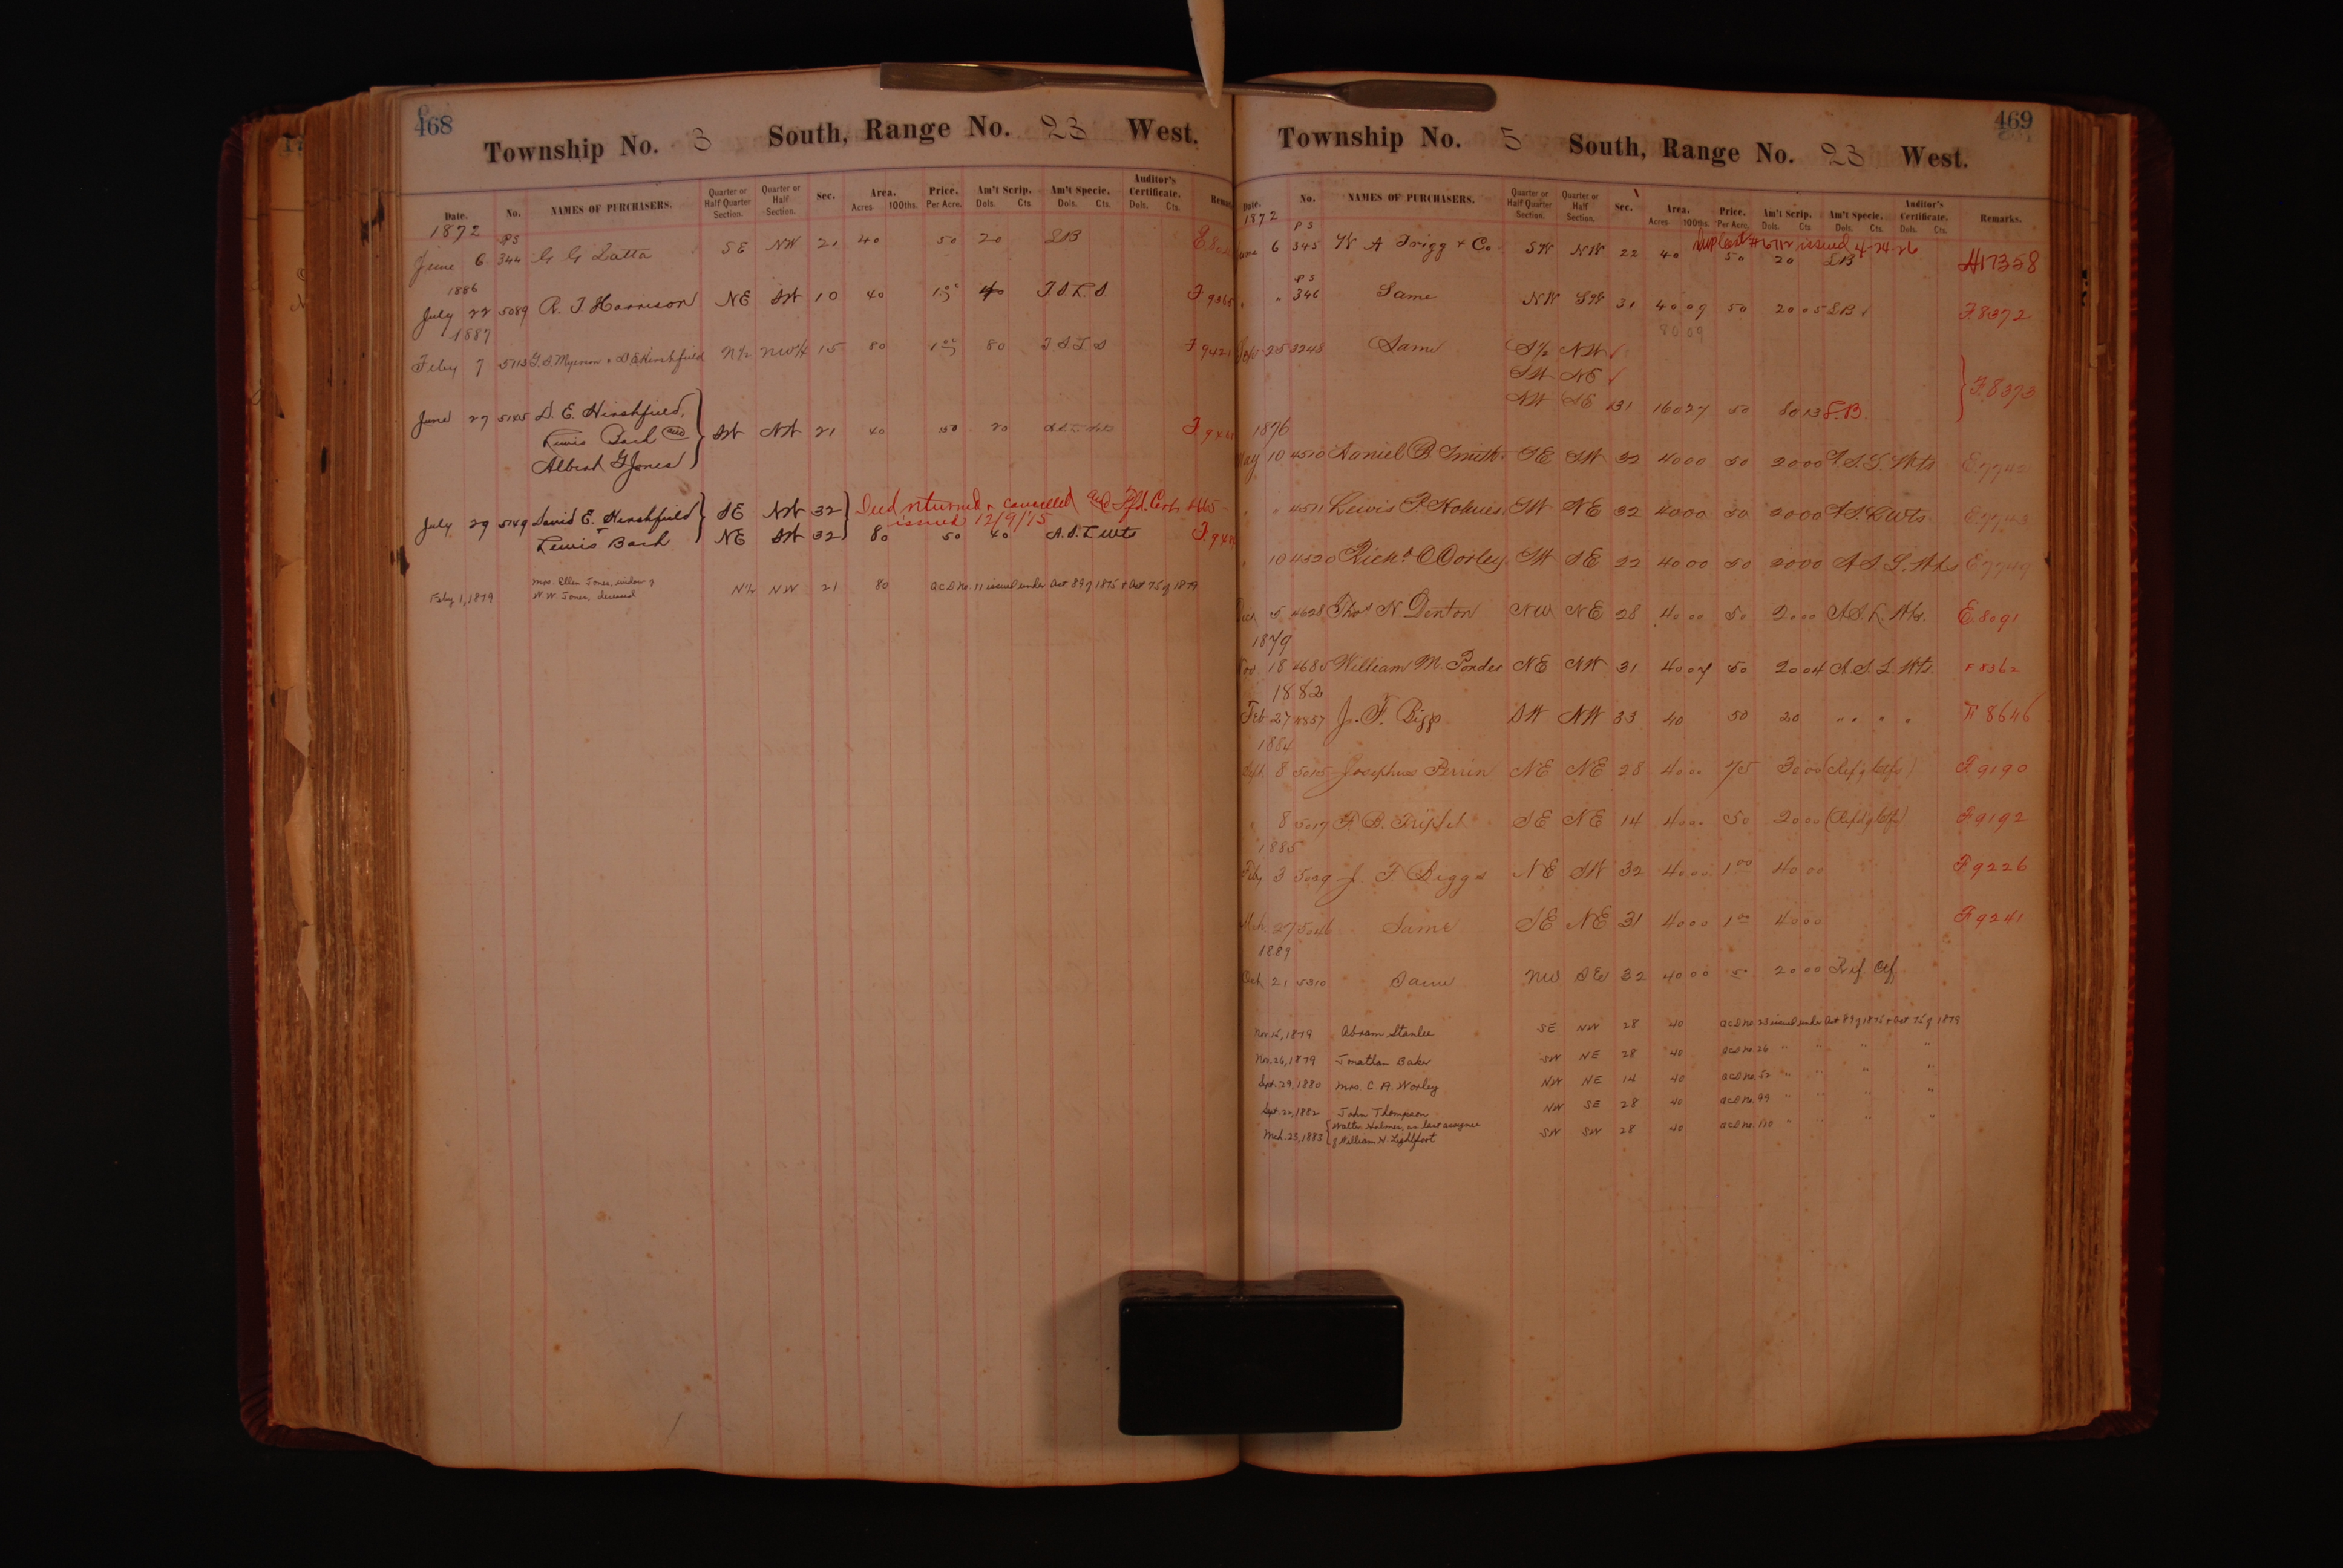 468
Township No. 3 South, Range No. 23 West.
Date. No. NAMES OF PURCHASERS. Quarter or Half Quarter Section. Quarter or Half Section. Sec. Area. Acres 100ths. Price. Per Acre. Am't Scrip. Dols. Cts. Am't Specie. Dols. Cts. Auditor's Certificate. Dols. Cts.
1872
PS
June 6 344 G G Latta SE NW 21 40 50 20
1886
July 22 5089 R. J. Harrison NE SW 10 40 1.00 40
1887
Feby 7 5113 N½ NW¼ 15 80 1.00 80
June 27 D. E. Hirshfield,
Lewis Bach and SW NW 21 40 50 20
Albert G Jones
July 29 5149 David E. Hirshfield SE NW 32 Deed returned & cancelled and Rfd. Cert. 465
issued 12/9/15
& Lewis Bach NE SW 32 80 50 40 A.S.L Wts
Feby 1, 1879 Mrs. Ellen Jones, widow of
W. W. Jones, deceased N½ NW 21 80 ACD No. 11 issued under Act 89 of 1875 + Act 75 of 1879
469
Township No. 5 South, Range No. 23 West.
Date. No. NAMES OF PURCHASERS. Quarter or Half Quarter Section. Quarter or Half Section. Sec. Area. Acres 100ths. Price. Per Acre. Am't Scrip. Dols. Cts Am't Specie. Dols. Cts. Auditor's Certificate. Dols. Cts. Remarks.
1872
PS
6 345 W A Trigg & Co. SW NW 22 40 50 20
issued 4-24-26
H17358
PS
" 346 Same NW SW 31 40 09 50 20 05 F.8372
80 09
25 3248 Same S½ NW
SW NE
NW SE 31 160 27 50 80 13 S.B. F.8373
1876
May 10 4510 Daniel B. Smith SE SW 32 40 00 50 20 00 A.S.L. Wts E7742
" 4511 Lewis P. Holmes SW NE 32 40 00 50 20 00 A.S.L Wts E.7743
10 4520 Richd O Corley SW SE 22 40 00 50 20 00 A S L. Wts E7749
Dec 5 4628 Thos N. Denton NW NE 28 40 00 50 20 00 A.S.L. Wts. E.8091
1879
Nov 18 4685 William M. Ponder NE NW 31 40 07 50 20 04 A.S.L. Wts. F8362
1882
Feb 27 4857 J. F. Biggs SW NW 33 40 50 20 " " " " F 8646
1884
Sept. 8 5015 Josephus Perrin NE NE 28 40 00 75 30 00 F.9190
8 5017 SE NE 14 40 00 50 20 00 F.9192
1885
Feby 3 5029 J. F. Biggs NE SW 32 40 00 1 00 40 00 F.9226
Mch 27 5046 Same SE NE 31 40 00 1 00 40 00 F.9241
1889
Oct 21 5310 Same NW SE 32 40 00 50 20 00 Ref. Cef
Nov. 15, 1879 Abram Stanlee SE NW 28 40 ACD No. 23 issued under Act 89 of 1875 + Act 75 of 1879
Nov. 26, 1879 Jonathan Baker SW NE 28 40 ACD No. 26 " " " "
Sept. 29, 1880 Mrs. C. A. Worley NW NE 14 40 ACD No. 52 " " " "
Sept. 22, 1882 John Thompson NW SE 28 40 ACD No. 99 " " " "
Mch. 23, 1883 Walter Holmes, as last assignee
of William H. Lightfoot SW SW 28 40 ACD No. 110 " " " "